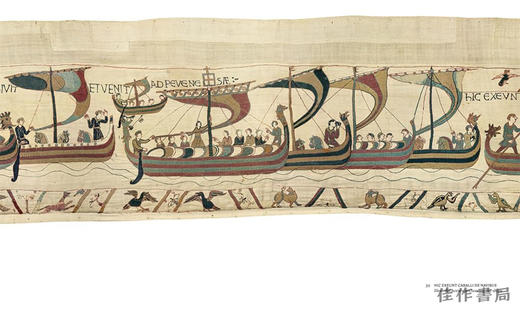 ET VENIT AD PEVENE SÆ:
HIC EXEVN
HIC EXEUNT CABALLI DE NAVIBUS
佳作書局